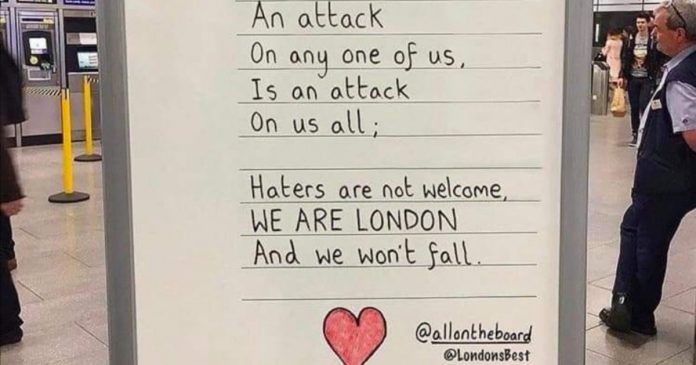 An attack
On any one of us,
Is an attack
On us all;
Haters are not welcome,
WE ARE LONDON
And we won't fall.
@allontheboard
@LondonsBest